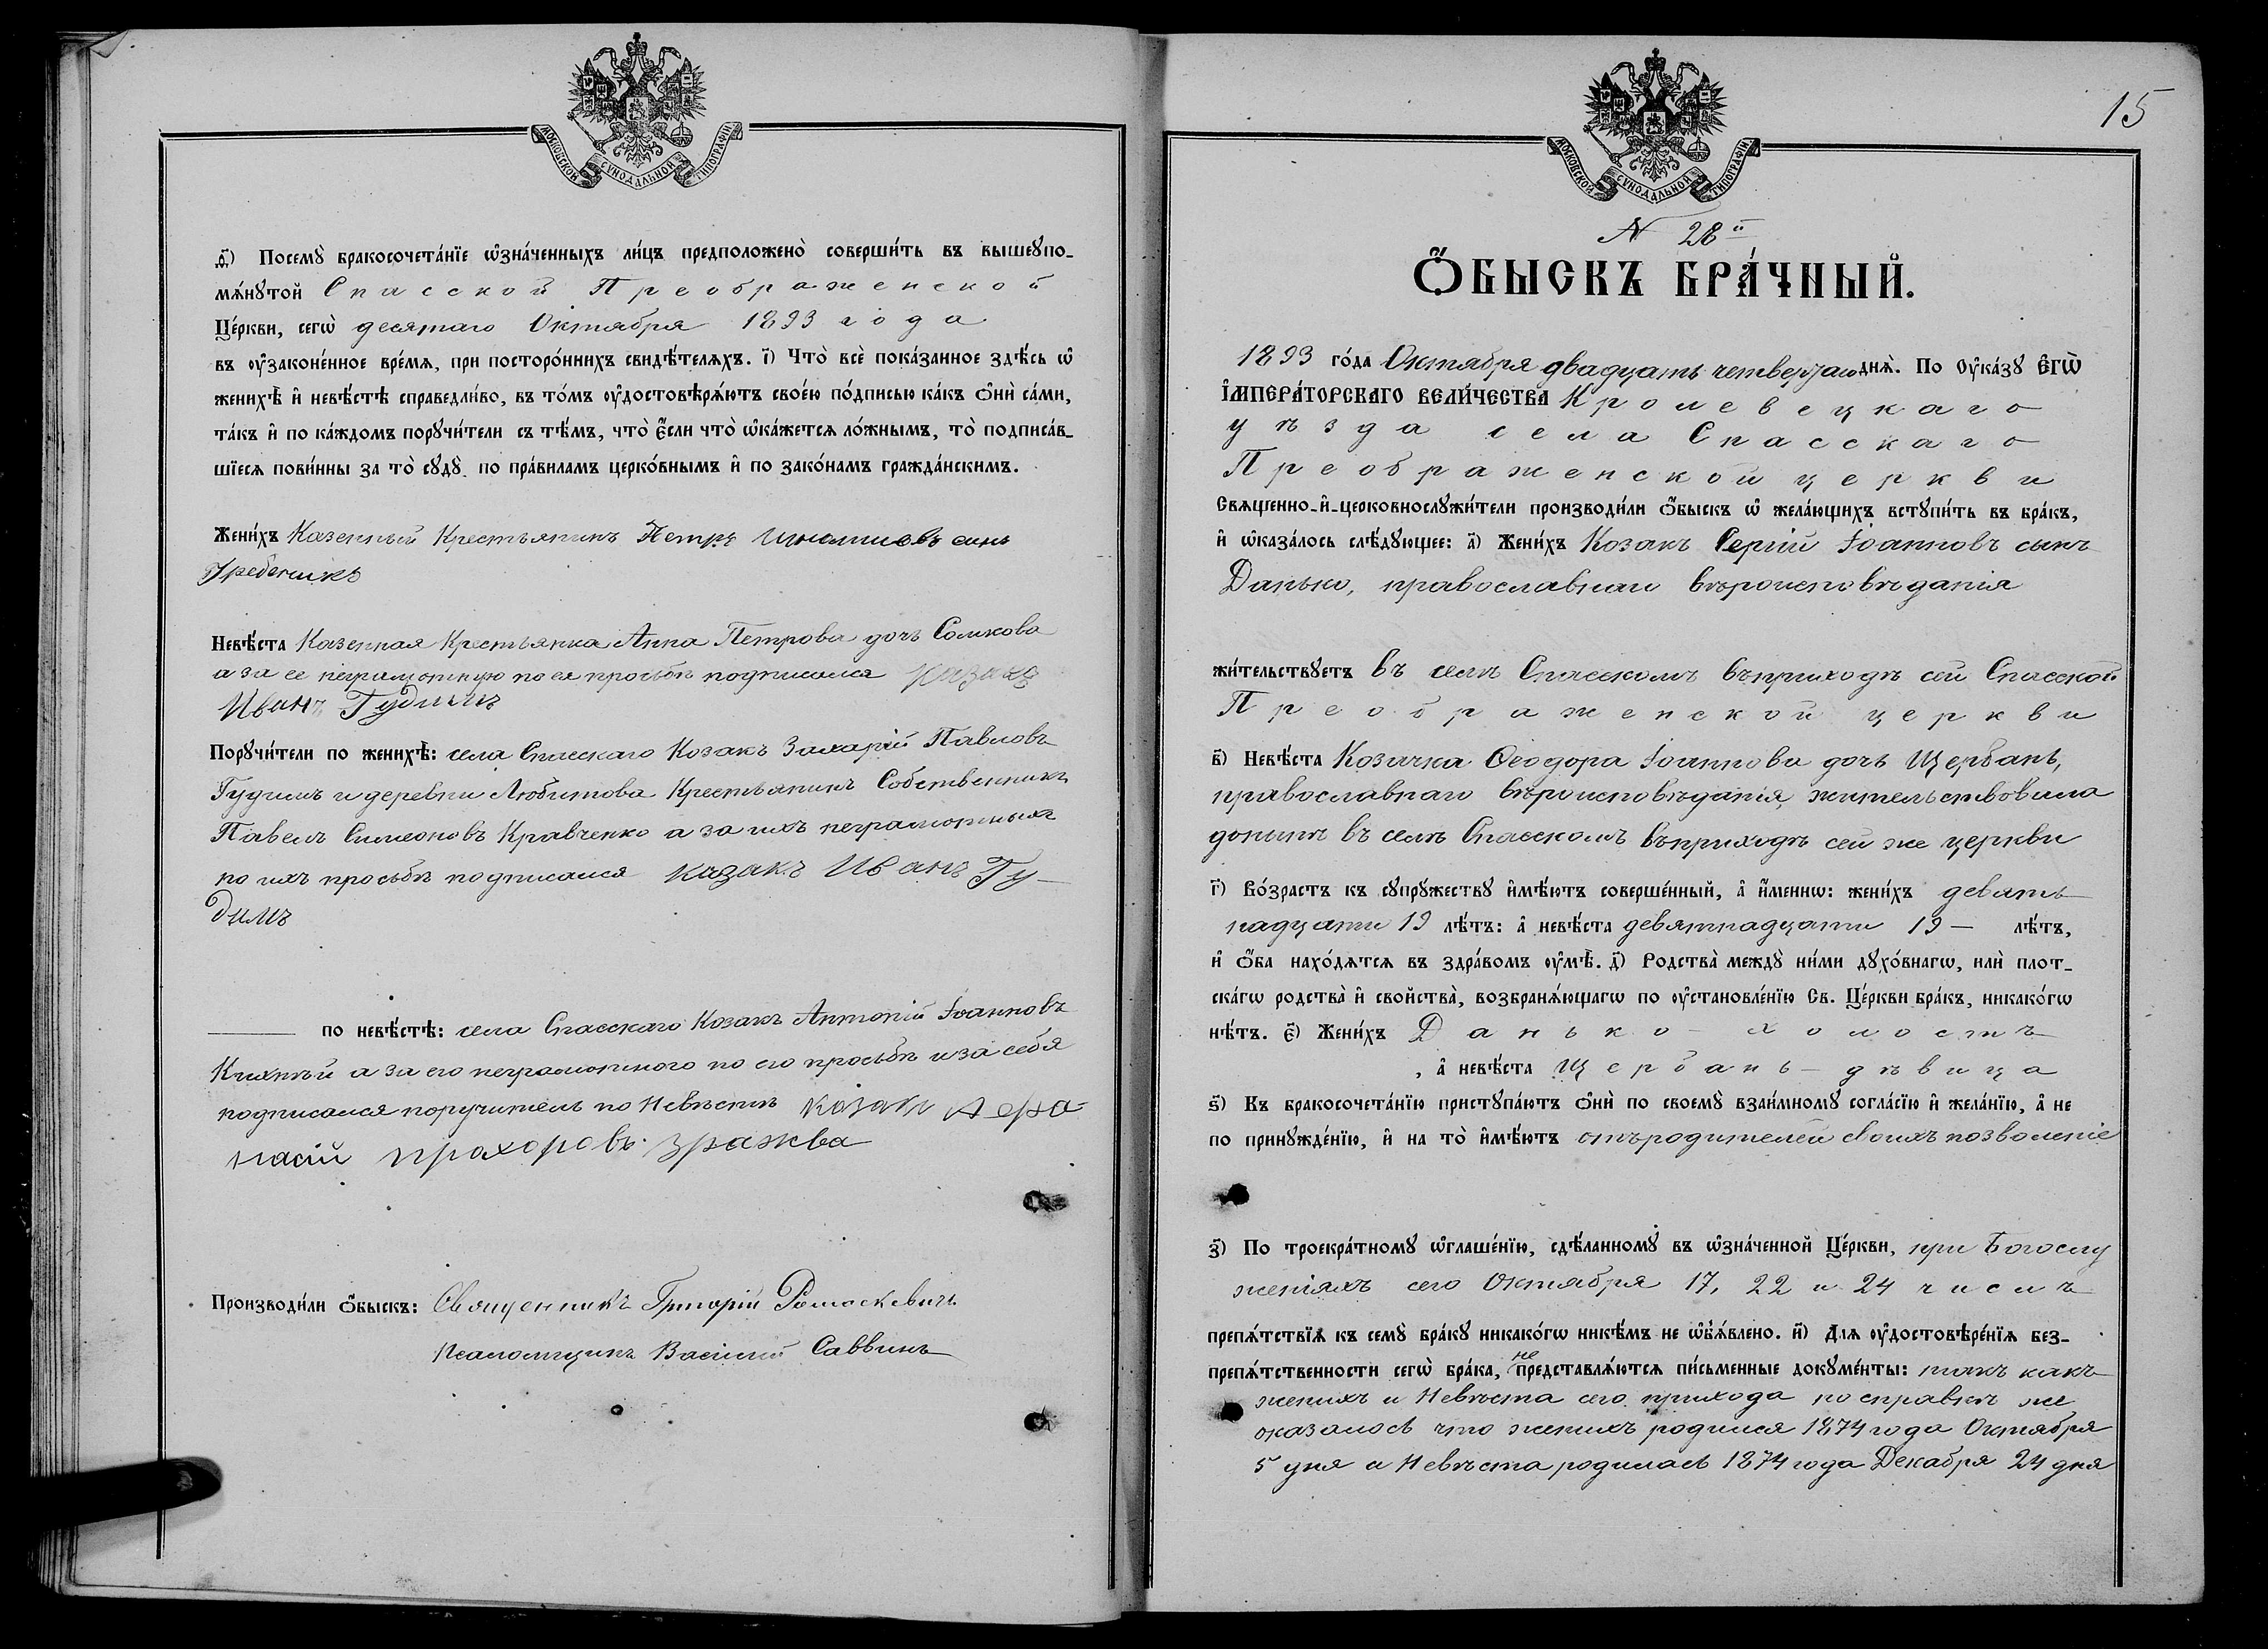 МОСКОВСКОЙ СУНОДАЛЬНОЙ ТИПОГРАФІИ
д҃) Посемꙋ̀ бракосочета́нїе ѡ҆зна́ченныхъ ли́цъ предположено̀ соверши́ть въ вышеꙋпо-
мѧ́нꙋтой Спасской Преображенской
Це́ркви, сегѡ̀ десятаго Октября 1893 года
въ ᲂу҆законе́нное вре́мѧ, при посторо́ннихъ свидѣ́телѧхъ. і҃) Что̀ всѐ пока́занное здѣ́сь ѡ҆
женихѣ̀ и҆ невѣ́стѣ справедли́во, въ то́мъ ᲂу҆достовѣрѧ́ютъ свое́ю по́дписью ка́къ ѻ҆нѝ са́ми,
та́къ и҆ по ка́ждомъ порꙋчи́тели съ тѣ́мъ, что̀ є҆́сли что̀ ѡ҆ка́жетсѧ ло́жнымъ, то̀ подписа́в-
шїесѧ пови́нны за то̀ сꙋдꙋ̀ по пра́виламъ церко́внымъ и҆ по зако́намъ гражда́нскимъ.
Жени́хъ Казенный Крестьянинъ Петръ сынъ
Гребеникъ
Невѣ́ста Казенная Крестьянка Анна Петрова дочь Сомкова
а за ее неграмотную по ея просьбѣ подписался казакъ
Иванъ Гудимъ
Порꙋчи́тели по женихѣ̀: села Спасскаго Козакъ Захарій Павловъ
Гудимъ и деревни Любитова Крестьянинъ Собственникъ
Павелъ Симеоновъ Кравченко а за ихъ неграмотныхъ
по ихъ просьбѣ подписался казакъ Иванъ Гу-
димъ
по невѣ́стѣ: села Спасскаго Козакъ Антоній Іоанновъ
а за его неграмотного по его просьбѣ и за себя
подписался поручитель по Невѣстѣ казакъ Афа-
насій прохоровъ зражва
Производи́ли ѻ҆́быскъ: Священникъ Григорій Ромаскевичъ
Псаломщикъ Василій Саввинъ
15
МОСКОВСКОЙ СУНОДАЛЬНОЙ ТИПОГРАФІИ
N 28й
Ѻ҆́БЫСКЪ БРА́ЧНЫЙ.
1893 го́да Октября двадцать четвертаго днѧ̀. По Оу҆ка́зꙋ Є҆гѡ̀
І҆мпера́торскаго вели́чества Кролевецкаго
уѣзда села Спасскаго
Преображенской церкви
Свѧщенно-и҆-церковнослꙋжи́тели производи́ли ѻ҆́быскъ ѡ҆ жела́ющихъ встꙋпи́ть въ бра́къ,
и҆ ѡ҆каза́лось слѣ́дꙋющее: а҃) Жени́хъ Козакъ Сергій Іоанновъ сынъ
Данько, православнаго вѣроисповѣданія
жи́тельствꙋетъ въ селѣ Спасскомъ въ приходѣ сей Спасской
Преображенской церкви
в҃) Невѣ́ста Козачка Ѳеодора Іоаннова дочь Щербань,
православнаго вѣроисповѣданія, жительствовала
донынѣ въ селѣ Спасскомъ въ приходѣ сей же церкви
г҃) Во́зрастъ къ сꙋпрꙋ́жествꙋ и҆мѣ́ютъ соверше́нный, а҆ и҆́меннѡ: жени́хъ девять
надцати 19 лѣ́тъ: а҆ невѣ́ста девятнадцати 19 — лѣ́тъ,
и҆ ѻ҆́ба нахо́дѧтсѧ въ здра́вомъ ᲂу҆мѣ̀. д҃) Родства̀ междꙋ̀ ни́ми дꙋхо́внагѡ, илѝ плот-
ска́гѡ родства̀ и҆ свойства̀, возбранѧ́ющагѡ по ᲂу҆становле́нїю Св. Це́ркви бра́къ, никако́гѡ
нѣ́тъ. є҃) Жени́хъ Данько — холостъ
, а҆ невѣ́ста Щербань — дѣвица
ѕ҃) Къ бракосочета́нїю пристꙋпа́ютъ ѻ҆нѝ по своемꙋ̀ взаи́мномꙋ согла́сїю и҆ жела́нїю, а҆ не
по принꙋжде́нїю, и҆ на то̀ и҆мѣ́ютъ отъ родителей своихъ позволеніе
з҃) По троекра́тномꙋ ѡ҆глаше́нїю, сдѣ́ланномꙋ въ ѡ҆зна́ченной Це́ркви, при Богослу
женіяхъ сего Октября 17, 22 и 24 числъ
препѧ́тствїѧ къ семꙋ̀ бра́кꙋ никако́гѡ никѣ́мъ не ѡ҆б̾ѧ́влено. и҃) Длѧ ᲂу҆достовѣре́нїѧ без-
препѧ́тственности сегѡ̀ бра́ка, не представлѧ́ютсѧ пи́сьменные докꙋме́нты: такъ какъ
женихъ и Невѣста сего прихода по справкѣ же
оказалось что женихъ родился 1874 года Октября
5 дня а Невѣста родилась 1874 года Декабря 24 дня